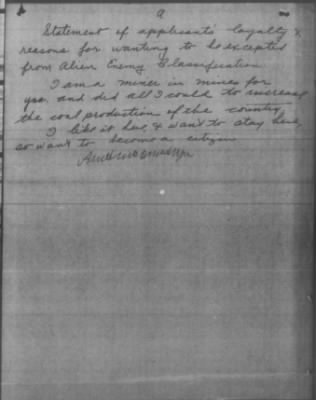 a
Statement of applicants loyalty &
reasons for wanting to be excepted
from Alien Enemy Classification
I am a miner in mines for
yrs. and did all I could to increase
the coal production of the country
I like it here, & want to stay here,
so want to become a citizen